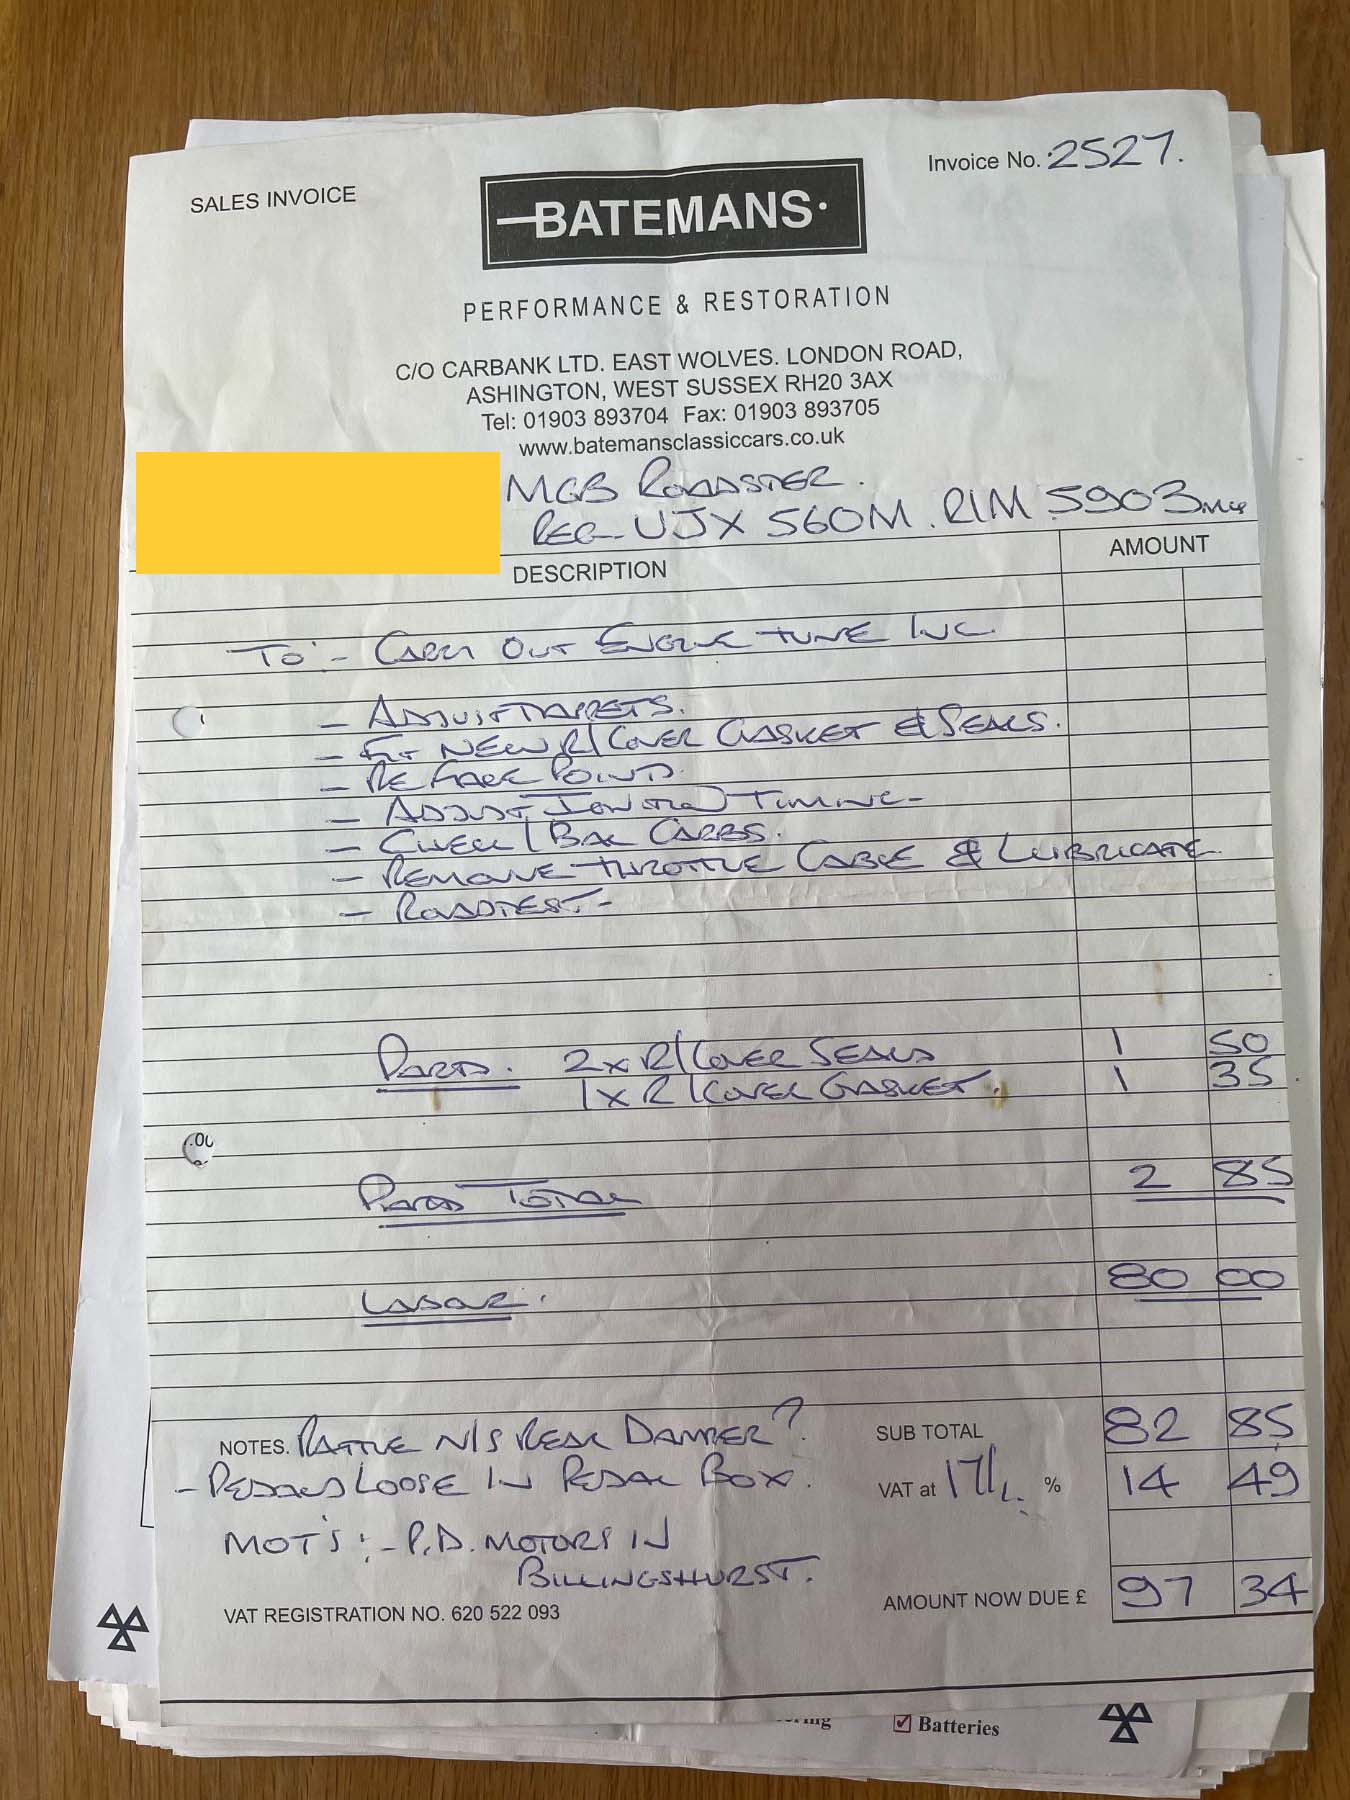 SALES INVOICE
Invoice No. 2527.
BATEMANS
PERFORMANCE & RESTORATION
C/O CARBANK LTD. EAST WOLVES. LONDON ROAD,
ASHINGTON, WEST SUSSEX RH20 3AX
Tel: 01903 893704 Fax: 01903 893705
www.batemansclassiccars.co.uk
MGB ROADSTER.
REG. UJX 560M. R/M 5903
DESCRIPTION
AMOUNT
TO:- CARRY OUT ENGINE TUNE INC.
- ADJUST TAPPETS.
- FIT NEW R/COVER GASKET & SEALS.
- RE FACE POINTS.
- ADJUST IGNITION TIMING-
- CHECK / BAL CARBS.
- REMOVE THROTTLE CABLE & LUBRICATE.
- ROADTEST.-
PARTS. 2x R/COVER SEALS 1 50
1x R/COVER GASKET. 1 35
.00
PARTS TOTAL 2 85
LABOUR. 80 00
NOTES. RATTLE N/S REAR DAMPER?
- PEDALS LOOSE IN PEDAL BOX.
MOT'S:- P.D. MOTORS IN
BILLINGSHURST.
SUB TOTAL 82 85
VAT at 17½ % 14 49
AMOUNT NOW DUE £ 97 34
VAT REGISTRATION NO. 620 522 093
Batteries